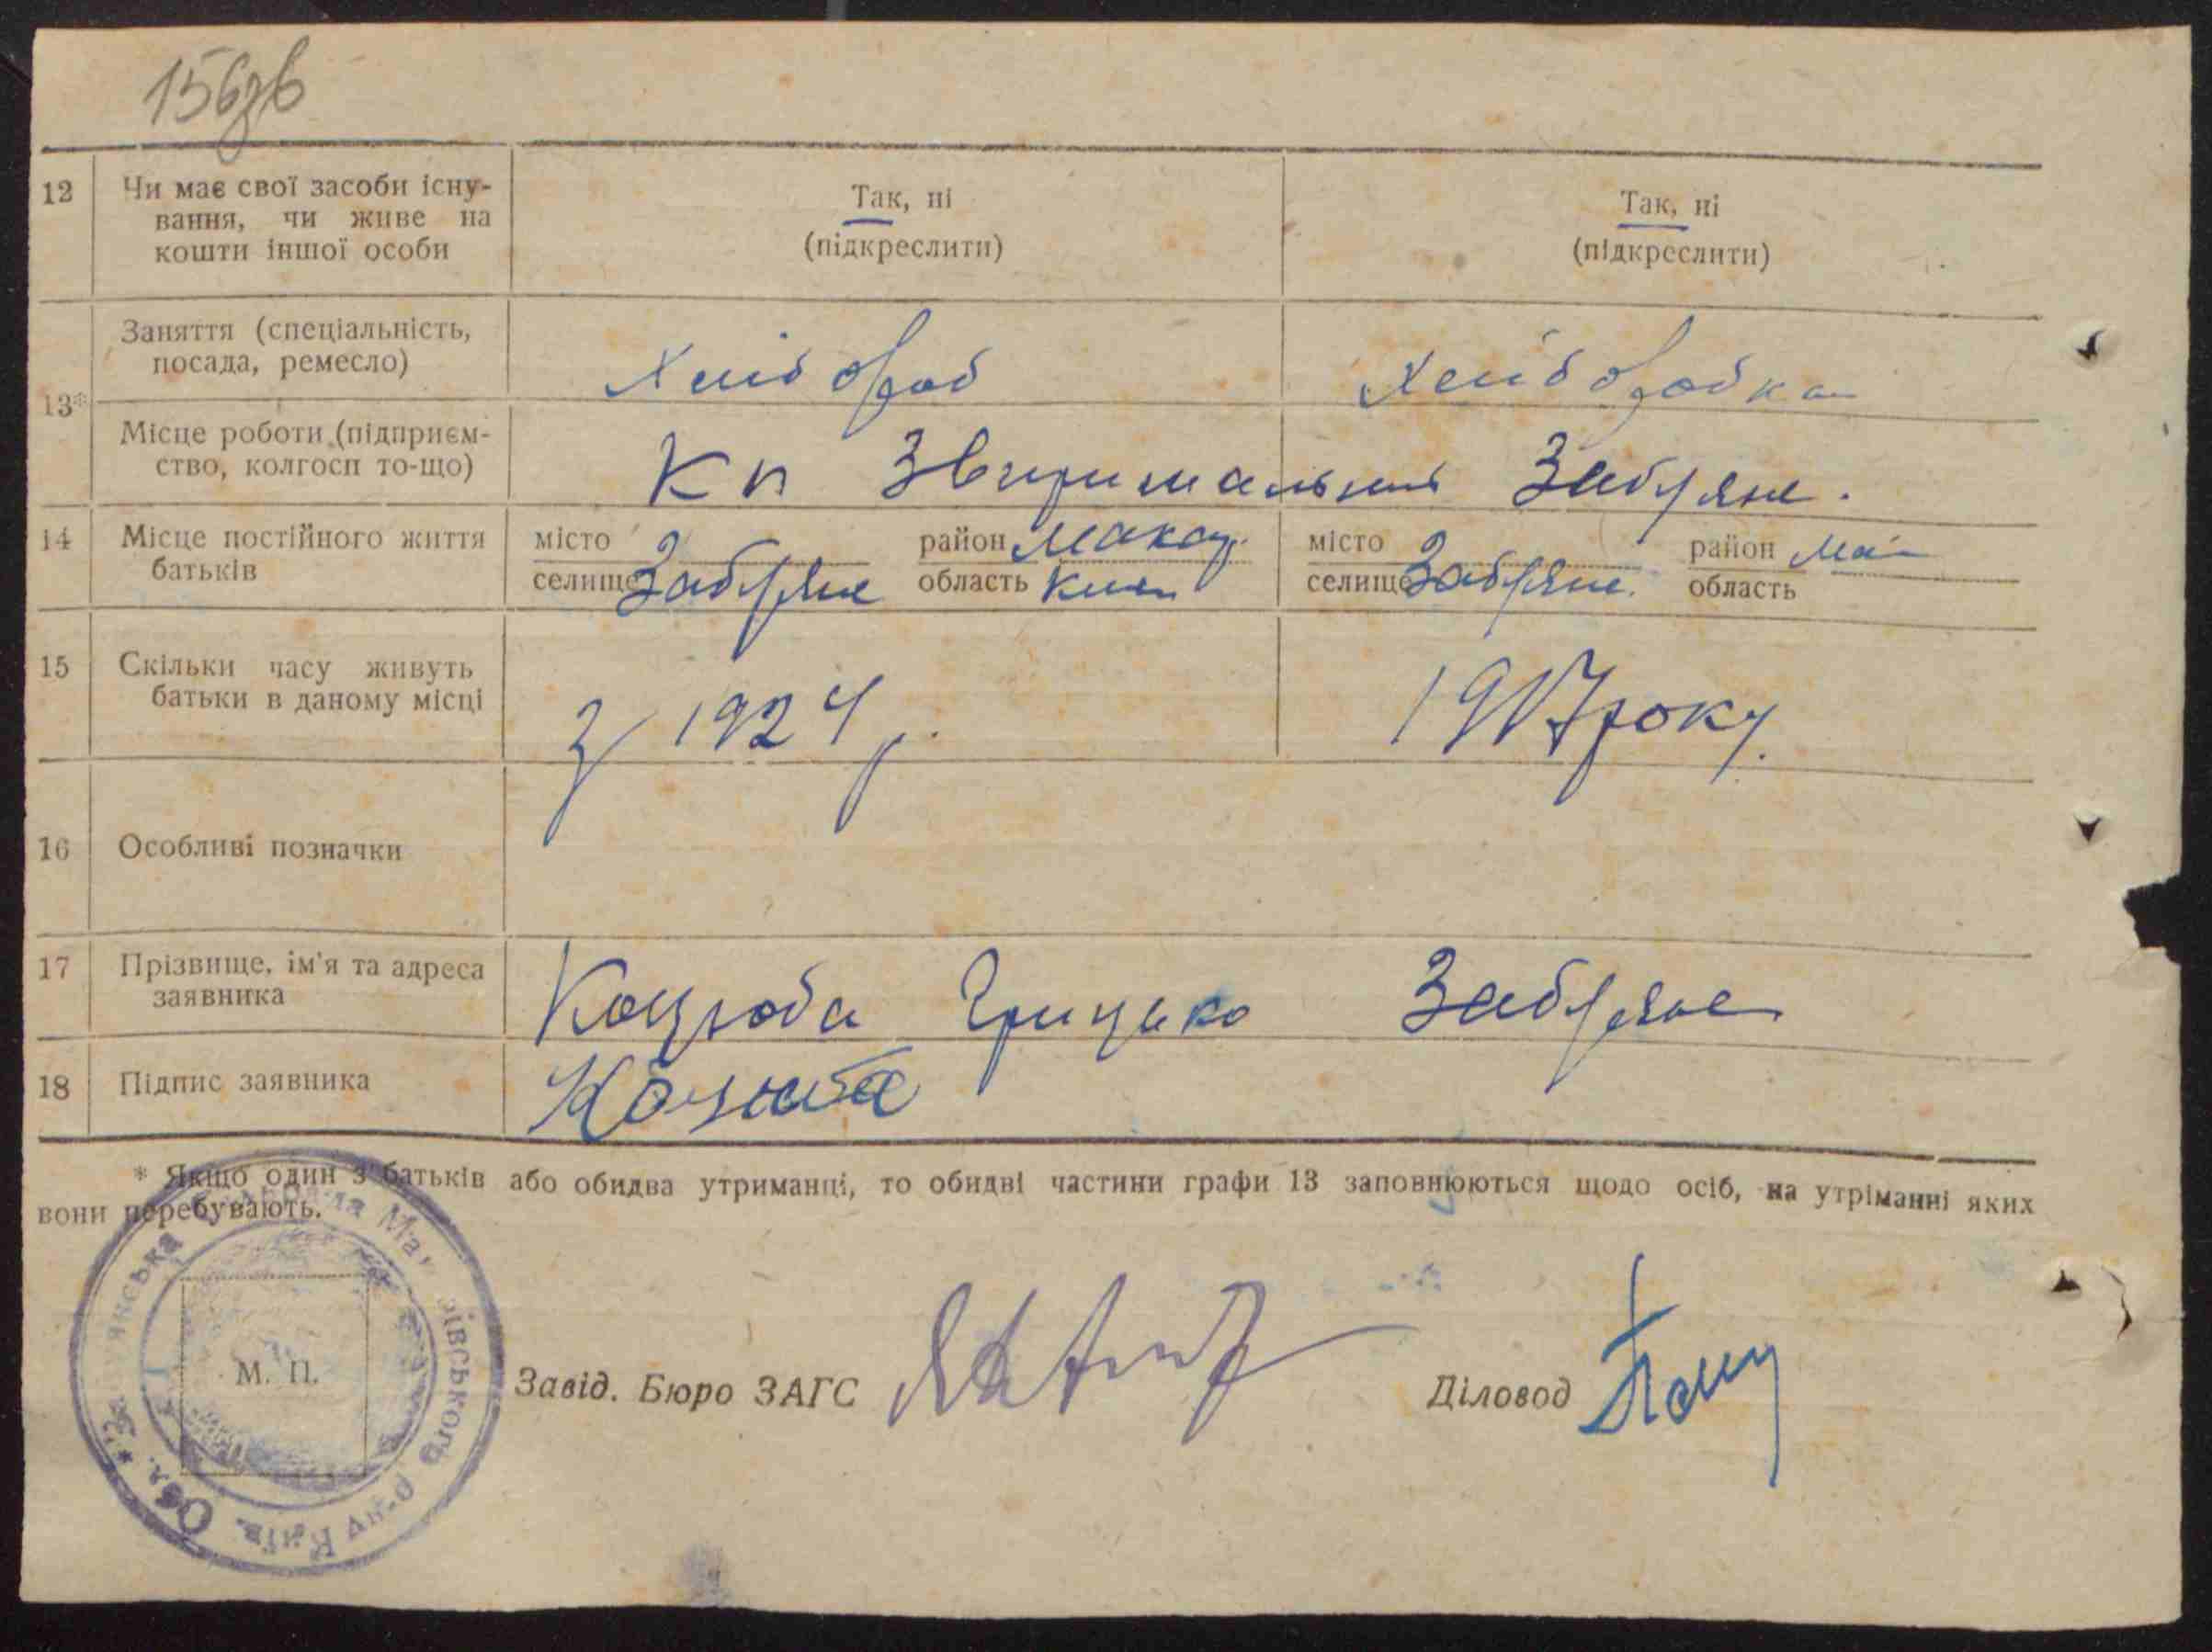 156зв
12 Чи має свої засоби існу- Так, ні Так, ні
вання, чи живе на (підкреслити) (підкреслити)
кошти іншої особи
Заняття (спеціальність, Хлібороб Хліборобка
посада, ремесло)
13*
Місце роботи (підприєм-
ство, колгосп то-що) Забуяне.
14 Місце постійного життя місто район Макар. місто район Ма
батьків селище Забуяне область Київ селище Забуяне. область
15 Скільки часу живуть
батьки в даному місці з 1924 р. 1917 року.
16 Особливі позначки
17 Прізвище, ім'я та адреса Коцюба Грицько Забуяне
заявника
18 Підпис заявника Коцюба
* Якщо один з батьків або обидва утриманці, то обидві частини графи 13 заповнюються щодо осіб, на утріманні яких
вони перебувають.
М. П. Завід. Бюро ЗАГС Діловод
рівського р-ну Київ. Обл. *